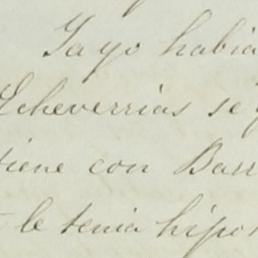 Ya yo habia
Echeverrias se
tiene con Barr
le tenia hipo